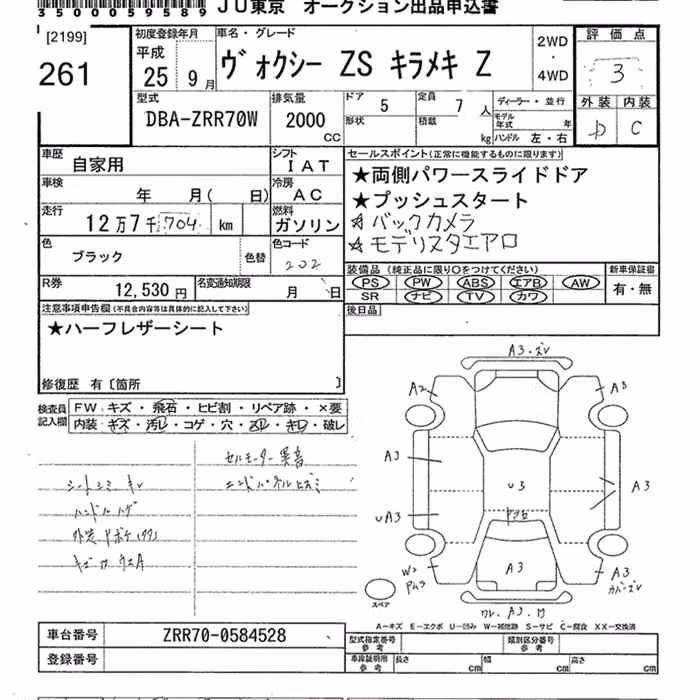 350059589 JU東京 オークション出品申込書
[2199]
261
初度登録年月
平成
25 9月
車名・グレード
ヴォクシー ZS キラメキ Z
2WD
・
4WD
評価点
3
外装 内装
D C
型式
DBA-ZRR70W
排気量
2000
CC
ドア 5
形状
定員 7 人
積載 kg
ディーラー・並行
モデル年式 年
ハンドル 左・右
車歴
自家用
シフト
IAT
車検
年 月( 日)
冷房
AC
走行
12万7千704 km
燃料
ガソリン
色
ブラック
色替
色コード
202
R券
12,530円
名変通知期限
月 日
セールスポイント(正常に機能するものに限ります)
★両側パワースライドドア
★プッシュスタート
☆バックカメラ
☆モデリスタエアロ
装備品(純正品に限り○をつけてください)
PS PW ABS エアB AW
SR ナビ TV カワ
新車保証書
有・無
後日品
注意事項申告欄(不具合内容等は具体的に記入して下さい)
★ハーフレザーシート
修復歴 有〔箇所 〕
検査員
記入欄
FW キズ・飛石・ヒビ割・リペア跡・×要
内装 キズ・汚レ・コゲ・穴・スレ・キレ・破レ
セルモーター異音
シートシミ
エンドパネルヒズミ
ハンドルハゲ
A3
A2
A3
A3
UA3
U3
A3
A3
W2
A3
A3
スペア
A−キズ E−エクボ U−凹み W−補修跡 S−サビ C−腐食 XX−交換済
車台番号
ZRR70-0584528
登録番号
型式指定番号
参考
類別区分番号
参考
車庫証明用
参考
長さ cm
幅 cm
高さ cm